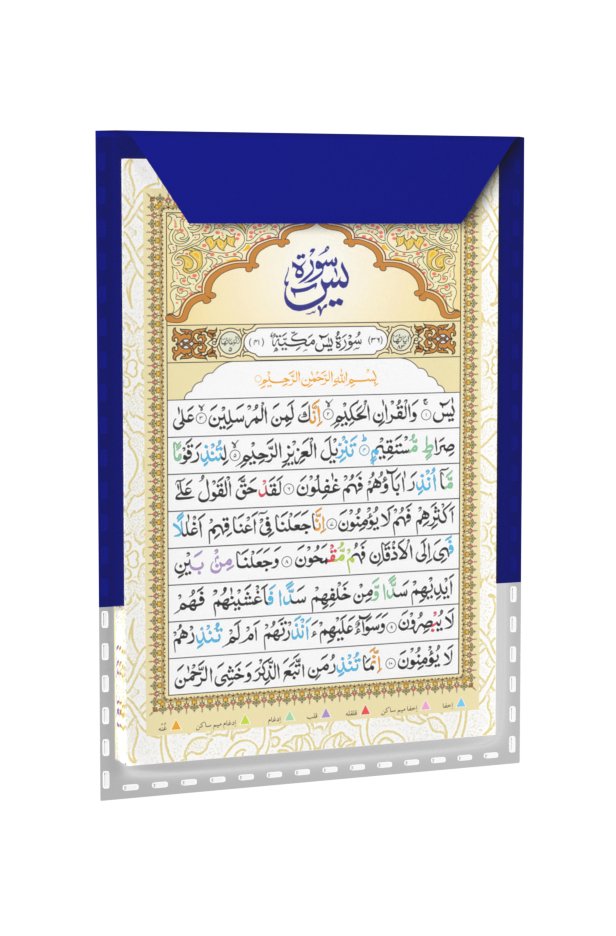 سُوْرَةُ
يٰسٓ
(٣٦) سُوْرَةُ يٰسٓ مَكِّيَّةٌ (٤١)
بِسْمِ اللّٰهِ الرَّحْمٰنِ الرَّحِيْمِ
يٰسٓ ۚ‏﴿۱﴾ وَالْقُرْاٰنِ الْحَكِيْمِ ۙ‏﴿۲﴾ اِنَّكَ لَمِنَ الْمُرْسَلِيْنَ ۙ‏﴿۳﴾ عَلٰى
صِرَاطٍ مُّسْتَقِيْمٍ ؕ‏﴿۴﴾ تَنْزِيْلَ الْعَزِيْزِ الرَّحِيْمِ ۙ‏﴿۵﴾ لِتُنْذِرَ قَوْمًا
مَّاۤ اُنْذِرَ اٰبَآؤُهُمْ فَهُمْ غٰفِلُوْنَ ﴿۶﴾ لَقَدْ حَقَّ الْقَوْلُ عَلٰٓى
اَكْثَرِهِمْ فَهُمْ لَا يُؤْمِنُوْنَ ﴿۷﴾ اِنَّا جَعَلْنَا فِىْۤ اَعْنَاقِهِمْ اَغْلٰلًا
فَهِىَ اِلَى الْاَذْقَانِ فَهُمْ مُّقْمَحُوْنَ ﴿۸﴾ وَجَعَلْنَا مِنْۢ بَيْنِ
اَيْدِيْهِمْ سَدًّا وَّمِنْ خَلْفِهِمْ سَدًّا فَاَغْشَيْنٰهُمْ فَهُمْ
لَا يُبْصِرُوْنَ ﴿۹﴾ وَسَوَآءٌ عَلَيْهِمْ ءَاَنْذَرْتَهُمْ اَمْ لَمْ تُنْذِرْهُمْ
لَا يُؤْمِنُوْنَ ﴿۱۰﴾ اِنَّمَا تُنْذِرُ مَنِ اتَّبَعَ الذِّكْرَ وَخَشِىَ الرَّحْمٰنَ
اخفا اخفا میم ساکن قلقله قلب ادغام ادغام میم ساکن غُنّه